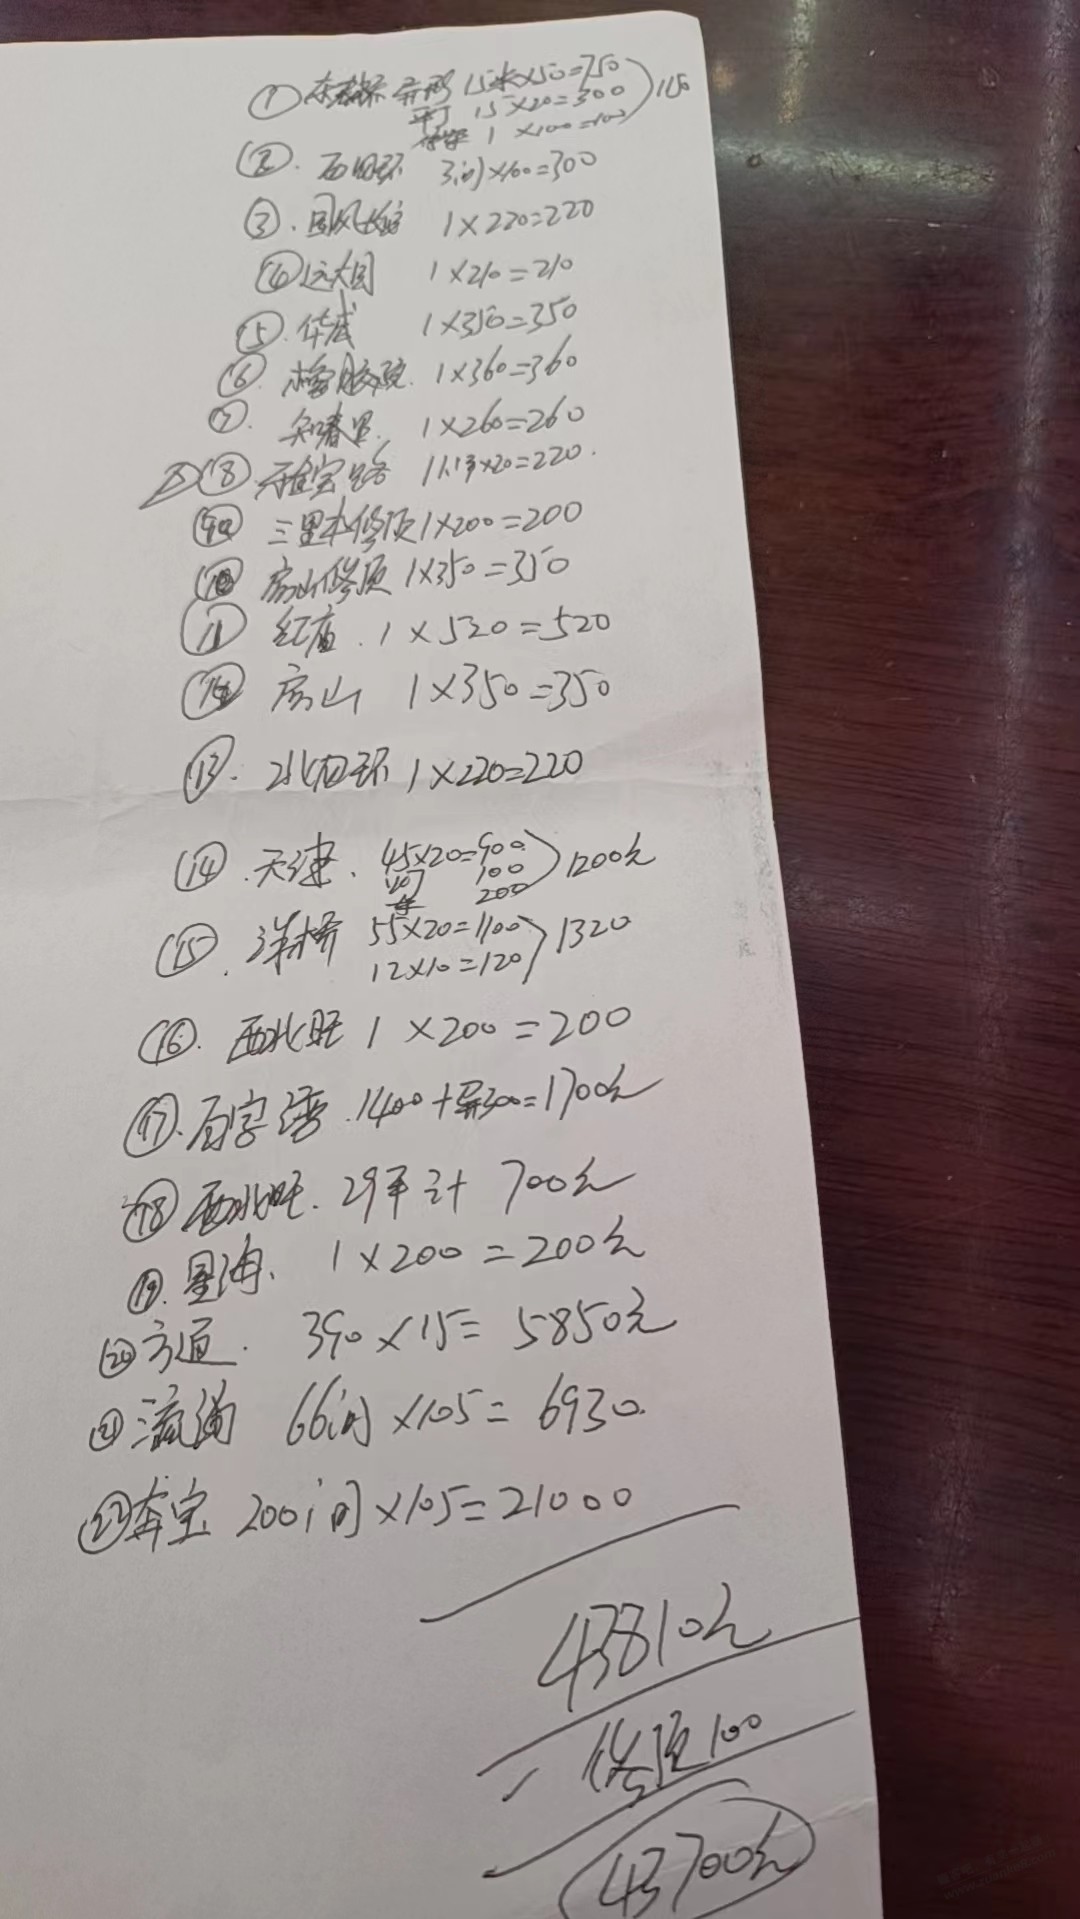 ① 异形 15米×50=750
15×20=300 1150
1×100=100
② 西四环 3间×100=300
③ 国风 1×220=220
④ 远大园 1×210=210
⑤ 华威 1×350=350
⑥ 橡胶院 1×360=360
⑦ 知春里 1×260=260
⑧ 宝路 11平×20=220
⑨ 三里 修顶 1×200=200
⑩ 房山修顶 1×350=350
⑪ 红庙 1×520=520
⑫ 房山 1×350=350
⑬ 北四环 1×220=220
⑭ 天津 45×20=900
100 1200元
200
⑮ 洋桥 55×20=1100 1320
12×10=120
⑯ 西北旺 1×200=200
⑰ 百字湾 1400+异300=1700元
⑱ 西北旺 29平计 700元
⑲ 星海 1×200=200元
⑳ 方通 390×15=5850元
㉑ 66间×105=6930
奔宝 200间×105=21000
43810元
- 修顶100
43700元